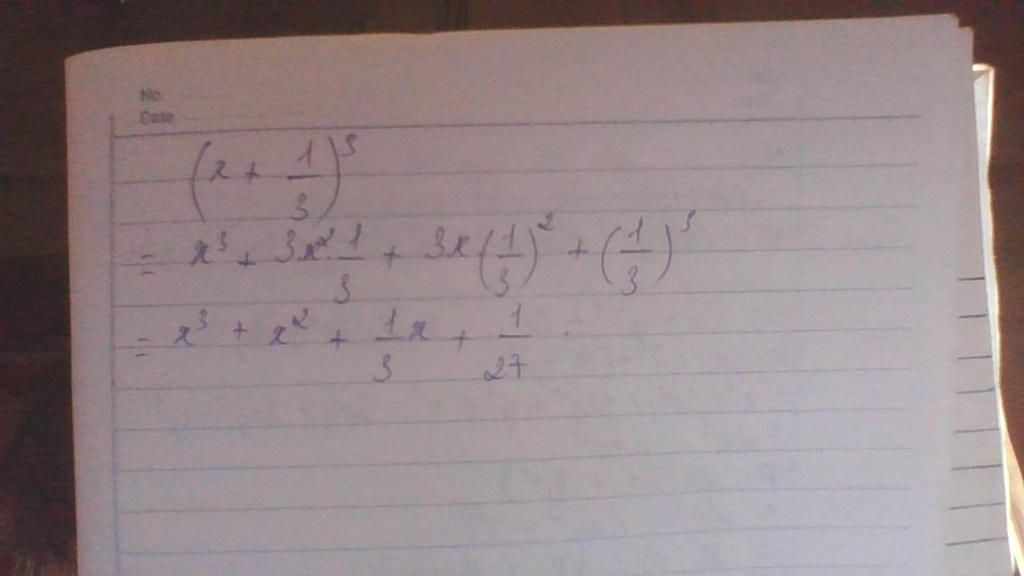 No
Date
(x + 1/3)³
= x³ + 3x².1/3 + 3x(1/3)² + (1/3)³
= x³ + x² + 1/3x + 1/27.